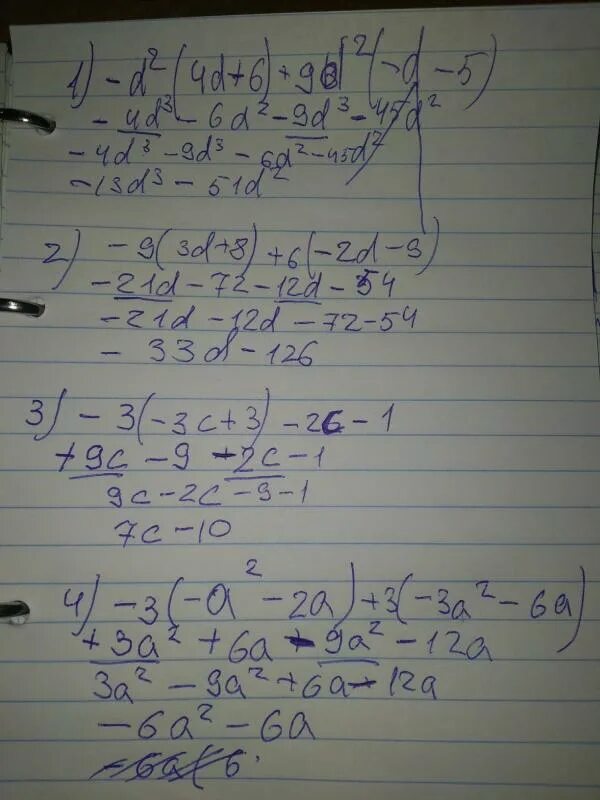 1) -d²(4d+6)+9d²(-d-5)
-4d³-6d²-9d³-45d²
-4d³-9d³-6d²-45d²
-13d³-51d²
2) -9(3d+8)+6(-2d-9)
-21d-72-12d-54
-21d-12d-72-54
-33d-126
3) -3(-3c+3)-2c-1
+9c-9-2c-1
9c-2c-9-1
7c-10
4) -3(-a²-2a)+3(-3a²-6a)
+3a²+6a-9a²-12a
3a²-9a²+6a-12a
-6a²-6a
-6a(6